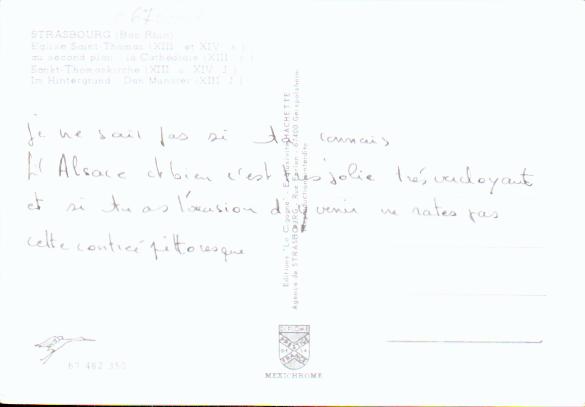 STRASBOURG (Bas-Rhin)
Eglise Saint-Thomas (XIII et XIV s.)
au second plan: la Cathédrale (XIII s.)
Sankt-Thomaskirche (XIII u. XIV J.)
Im Hintergrund: Das Münster (XIII J.)
je ne sais pas si tu connais
l'Alsace et bien c'est très jolie très verdoyant
et si tu as l'occasion d'y venir ne rates pas
cette contrée pittoresque
Editions "La Cigogne" - Exclusivité HACHETTE
Agence de STRASBOURG - 67400 Geispolsheim
Reproduction interdite
67 482 350
PRESTIGE
FRANCE
MEXICHROME